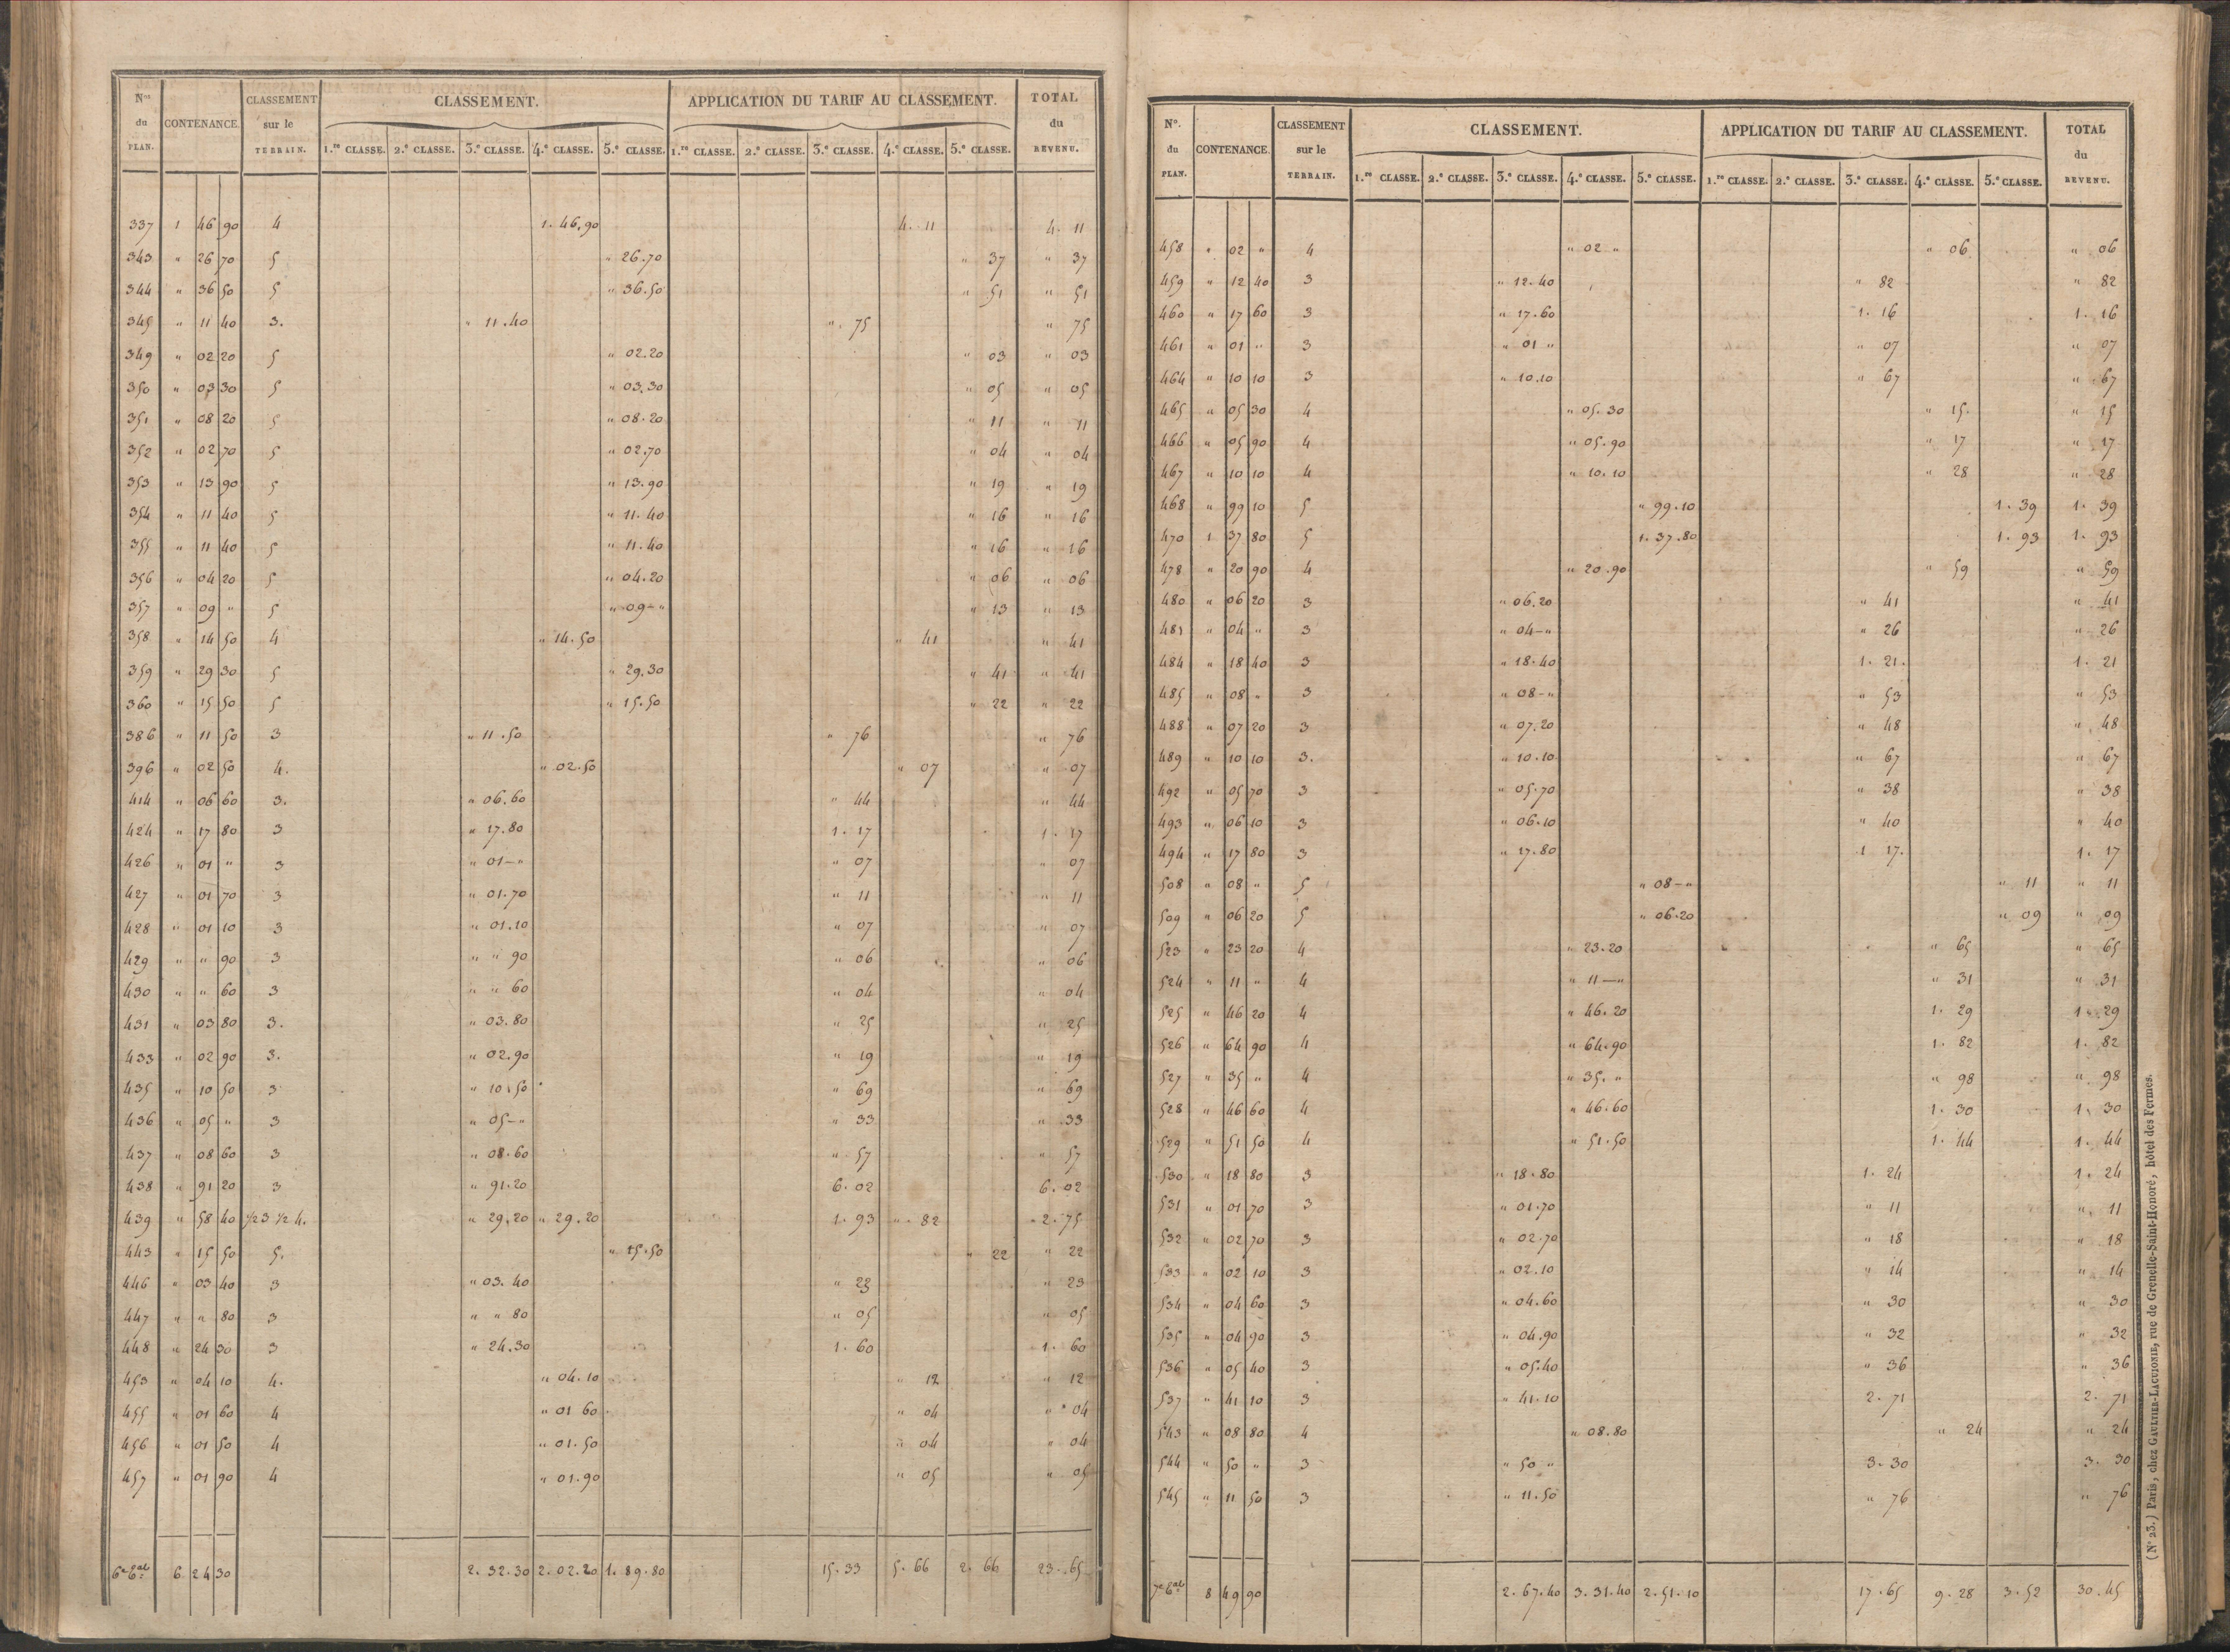 Nos du PLAN. CONTENANCE. CLASSEMENT sur le TERRAIN. CLASSEMENT. APPLICATION DU TARIF AU CLASSEMENT. TOTAL du REVENU.
1.re CLASSE. 2.e CLASSE. 3.e CLASSE. 4.e CLASSE. 5.e CLASSE. 1.re CLASSE. 2.e CLASSE. 3.e CLASSE. 4.e CLASSE. 5.e CLASSE.
337 1 46 90 4 1. 46,90 4. 11 4. 11
343 " 26 70 5 " 26.70 " 37 " 37
344 " 36 50 5 " 36.50 " 51 " 51
345 " 11 40 3. " 11.40 " 75 " 75
349 " 02 20 5 " 02.20 " 03 " 03
350 " 03 30 5 " 03.30 " 05 " 05
351 " 08 20 5 " 08.20 " 11 " 11
352 " 02 70 5 " 02.70 " 04 " 04
353 " 13 90 5 " 13.90 " 19 " 19
354 " 11 40 5 " 11.40 " 16 " 16
355 " 11 40 5 " 11.40 " 16 " 16
356 " 04 20 5 " 04.20 " 06 " 06
357 " 09 " 5 " 09-" " 13 " 13
358 " 14 50 4 " 14.50 " 41 " 41
359 " 29 30 5 " 29.30 " 41 " 41
360 " 15 50 5 " 15.50 " 22 " 22
386 " 11 50 3 " 11.50 " 76 " 76
396 " 02 50 4. " 02.50 " 07 " 07
414 " 06 60 3. " 06.60 " 44 " 44
424 " 17 80 3 " 17.80 1. 17 1. 17
426 " 01 " 3 " 01-" " 07 " 07
427 " 01 70 3 " 01.70 " 11 " 11
428 " 01 10 3 " 01.10 " 07 " 07
429 " " 90 3 " " 90 " 06 " 06
430 " " 60 3 " " 60 " 04 " 04
431 " 03 80 3. " 03.80 " 25 " 25
433 " 02 90 3. " 02.90 " 19 " 19
435 " 10 50 3 " 10.50 " 69 " 69
436 " 05 " 3 " 05-" " 33 " 33
437 " 08 60 3 " 08.60 " 57 " 57
438 " 91 20 3 " 91.20 6. 02 6. 02
439 " 58 40 1/2 3 1/2 4. " 29.20 " 29.20 1. 93 " 82 2. 75
443 " 15 50 5. " 15.50 " 22 " 22
446 " 03 40 3 " 03.40 " 23 " 23
447 " " 80 3 " " 80 " 05 " 05
448 " 24 30 3 " 24.30 1. 60 1. 60
453 " 04 10 4. " 04.10 " 12 " 12
455 " 01 60 4 " 01 60 " 04 " 04
456 " 01 50 4 " 01.50 " 04 " 04
457 " 01 90 4 " 01.90 " 05 " 05
6 24 30 2. 32.30 2. 02.20 1. 89.80 15. 33 5. 66 2. 66 23. 65
No. du PLAN. CONTENANCE. CLASSEMENT sur le TERRAIN. CLASSEMENT. APPLICATION DU TARIF AU CLASSEMENT. TOTAL du REVENU.
1.re CLASSE. 2.e CLASSE. 3.e CLASSE. 4.e CLASSE. 5.e CLASSE. 1.re CLASSE. 2.e CLASSE. 3.e CLASSE. 4.e CLASSE. 5.e CLASSE.
458 " 02 " 4 " 02 " " 06 " 06
459 " 12 40 3 " 12.40 " 82 " 82
460 " 17 60 3 " 17.60 1. 16 1. 16
461 " 01 " 3 " 01 " " 07 " 07
464 " 10 10 3 " 10.10 " 67 " 67
465 " 05 30 4 " 05.30 " 15 " 15
466 " 05 90 4 " 05.90 " 17 " 17
467 " 10 10 4 " 10.10 " 28 " 28
468 " 99 10 5 " 99.10 1. 39 1. 39
470 1 37 80 5 1. 37.80 1. 93 1. 93
478 " 20 90 4 " 20.90 " 59 " 59
480 " 06 20 3 " 06.20 " 41 " 41
481 " 04 " 3 " 04-" " 26 " 26
484 " 18 40 3 " 18.40 1. 21. 1. 21
485 " 08 " 3 " 08-" " 53 " 53
488 " 07 20 3 " 07.20 " 48 " 48
489 " 10 10 3. " 10.10 " 67 " 67
492 " 05 70 3 " 05.70 " 38 " 38
493 " 06 10 3 " 06.10 " 40 " 40
494 " 17 80 3 " 17.80 1 17. 1. 17
508 " 08 " 5 " 08-" " 11 " 11
509 " 06 20 5 " 06.20 " 09 " 09
523 " 23 20 4 " 23.20 " 65 " 65
524 " 11 " 4 " 11-" " 31 " 31
525 " 46 20 4 " 46.20 1. 29 1. 29
526 " 64 90 4 " 64.90 1. 82 1. 82
527 " 35 " 4 " 35. " " 98 " 98
528 " 46 60 4 " 46.60 1. 30 1. 30
529 " 51 50 4 " 51.50 1. 44 1. 44
530 " 18 80 3 " 18.80 1. 24 1. 24
531 " 01 70 3 " 01.70 " 11 " 11
532 " 02 70 3 " 02.70 " 18 " 18
533 " 02 10 3 " 02.10 " 14 " 14
534 " 04 60 3 " 04.60 " 30 " 30
535 " 04 90 3 " 04.90 " 32 " 32
536 " 05 40 3 " 05.40 " 36 " 36
537 " 41 10 3 " 41.10 2. 71 2. 71
543 " 08 80 4 " 08.80 " 24 " 24
544 " 50 " 3 " 50 " 3. 30 3. 30
545 " 11 50 3 " 11.50 " 76 " 76
8 49 90 2. 67.40 3. 31.40 2. 51.10 17. 65 9. 28 3. 52 30. 45
(No 23.) Paris, chez GAULTIER-LAGUIONIE, rue de Grenelle-Saint-Honoré, hôtel des Fermes.